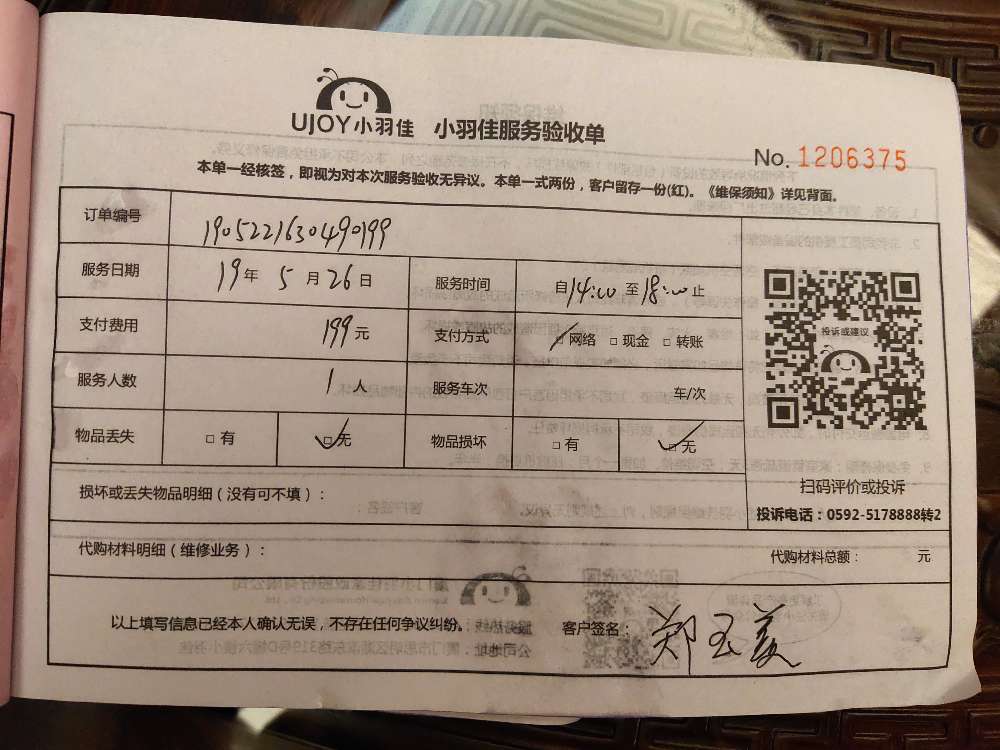 UJOY小羽佳 小羽佳服务验收单
No. 1206375
本单一经核签，即视为对本次服务验收无异议。本单一式两份，客户留存一份(红)。《维保须知》详见背面。
订单编号 1905221630490199
服务日期 19年 5月26日 服务时间 自14:00至18:00止
支付费用 199元 支付方式 ☑网络 □现金 □转账
服务人数 1人 服务车次 车/次
物品丢失 □有 ☑无 物品损坏 □有 ☑无
投诉或建议
扫码评价或投诉
投诉电话：0592-5178888转2
损坏或丢失物品明细（没有可不填）：
代购材料明细（维修业务）： 代购材料总额： 元
以上填写信息已经本人确认无误，不存在任何争议纠纷。 客户签名：郑玉美